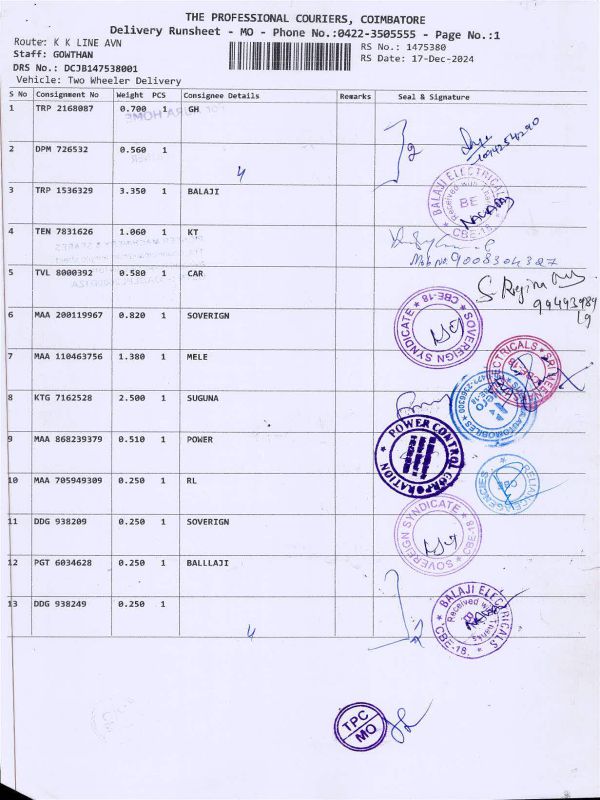 THE PROFESSIONAL COURIERS, COIMBATORE
Delivery Runsheet - MO - Phone No.:0422-3505555 - Page No.:1
Route: K K LINE AVN
RS No.: 1475380
Staff: GOWTHAN
RS Date: 17-Dec-2024
DRS No.: DCJB147538001
Vehicle: Two Wheeler Delivery
S No Consignment No Weight PCS Consignee Details Remarks Seal & Signature
1 TRP 2168087 0.700 1 GH
2 DPM 726532 0.560 1
2
4
3 TRP 1536329 3.350 1 BALAJI
BALAJI ELECTRICALS
Received with Thanks
BE
CBE-18.
4 TEN 7831626 1.060 1 KT
Mob No. 9008304327
5 TVL 8000392 0.580 1 CAR
6 MAA 200119967 0.820 1 SOVERIGN
SOVEREIGN SYNDICATE * CBE-18 *
7 MAA 110463756 1.380 1 MELE
ELECTRICALS
8 KTG 7162528 2.500 1 SUGUNA
AUTOMOBILES
9 MAA 868239379 0.510 1 POWER
POWER CONTROL CORPORATION
10 MAA 705949309 0.250 1 RL
RELIANCE AGENCIES
CBE
11 DDG 938209 0.250 1 SOVERIGN
SOVEREIGN SYNDICATE * CBE-18 *
12 PGT 6034628 0.250 1 BALLLAJI
13 DDG 938249 0.250 1
BALAJI ELECTRICALS
Received with Thanks
CBE-18.
2
4
TPC
MO